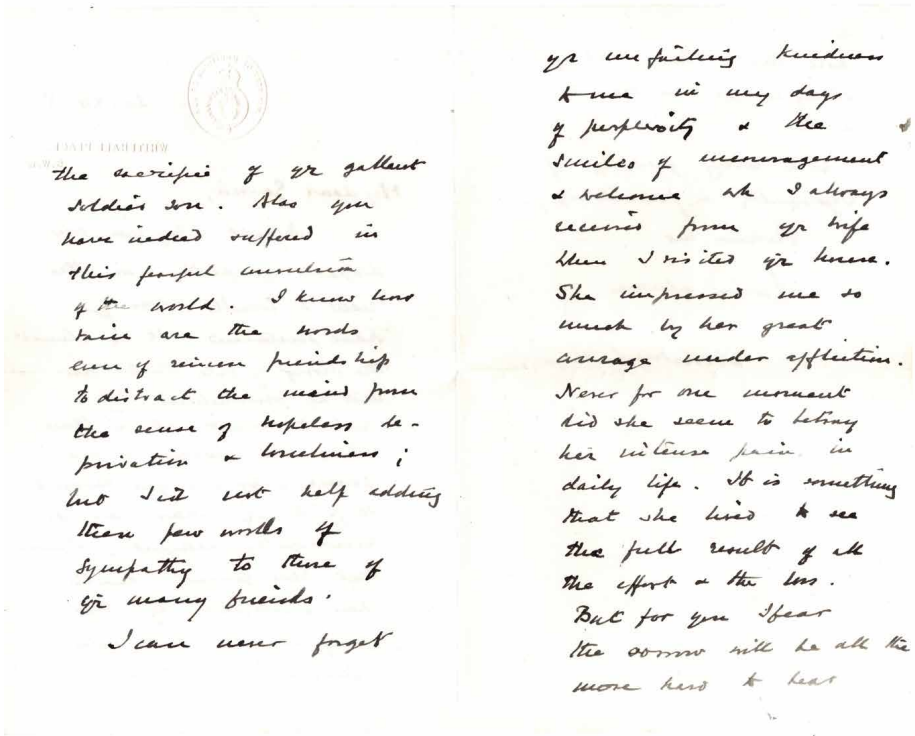 the sacrifice of yr gallant
soldier son. Alas you
have indeed suffered in
this fearful convulsion
of the world. I know how
vain are the words
even of sincere friendship
to distract the mind from
the sense of hopeless de-
privation & loneliness;
but I cd not help adding
these few words of
sympathy to those of
yr many friends.
I can never forget
yr unfailing kindness
to me in my days
of perplexity & the
smiles of encouragement
& welcome wh I always
received from yr wife
when I visited yr house.
She impressed me so
much by her great
courage under affliction.
Never for one moment
did she seem to betray
her intense pain in
daily life. It is something
that she lived to see
the full result of all
the effort & the loss.
But for you I fear
the sorrow will be all the
more hard to bear